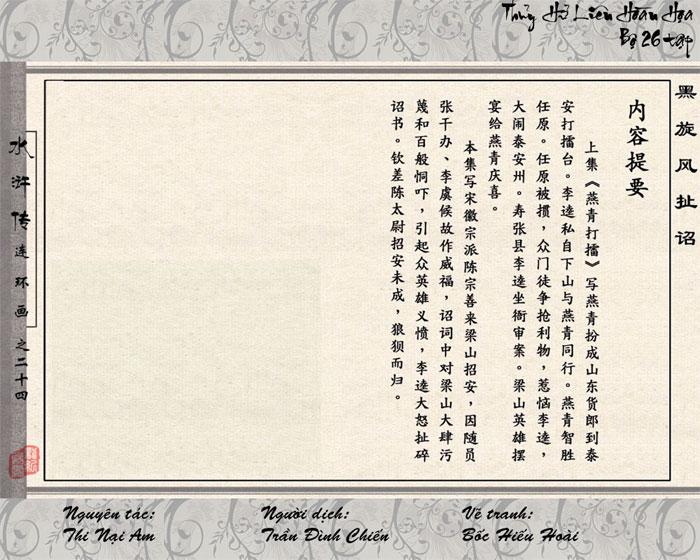 Thủy Hử Liên Hoàn Họa
Bộ 26 tập
黑旋风扯诏
内容提要
上集《燕青打擂》写燕青扮成山东货郎到泰
安打擂台。李逵私自下山与燕青同行。燕青智胜
任原。任原被掼，众门徒争抢利物，惹恼李逵，
大闹泰安州。寿张县李逵坐衙审案。梁山英雄摆
宴给燕青庆喜。
本集写宋徽宗派陈宗善来梁山招安，因随员
张干办、李虞候故作威福，诏词中对梁山大肆污
蔑和百般恫吓，引起众英雄义愤，李逵大怒扯碎
诏书。钦差陈太尉招安未成，狼狈而归。
水浒传连环画之二十四
Nguyên tác:
Thi Nại Am
Người dịch:
Trần Đình Chiến
Vẽ tranh:
Bốc Hiếu Hoài